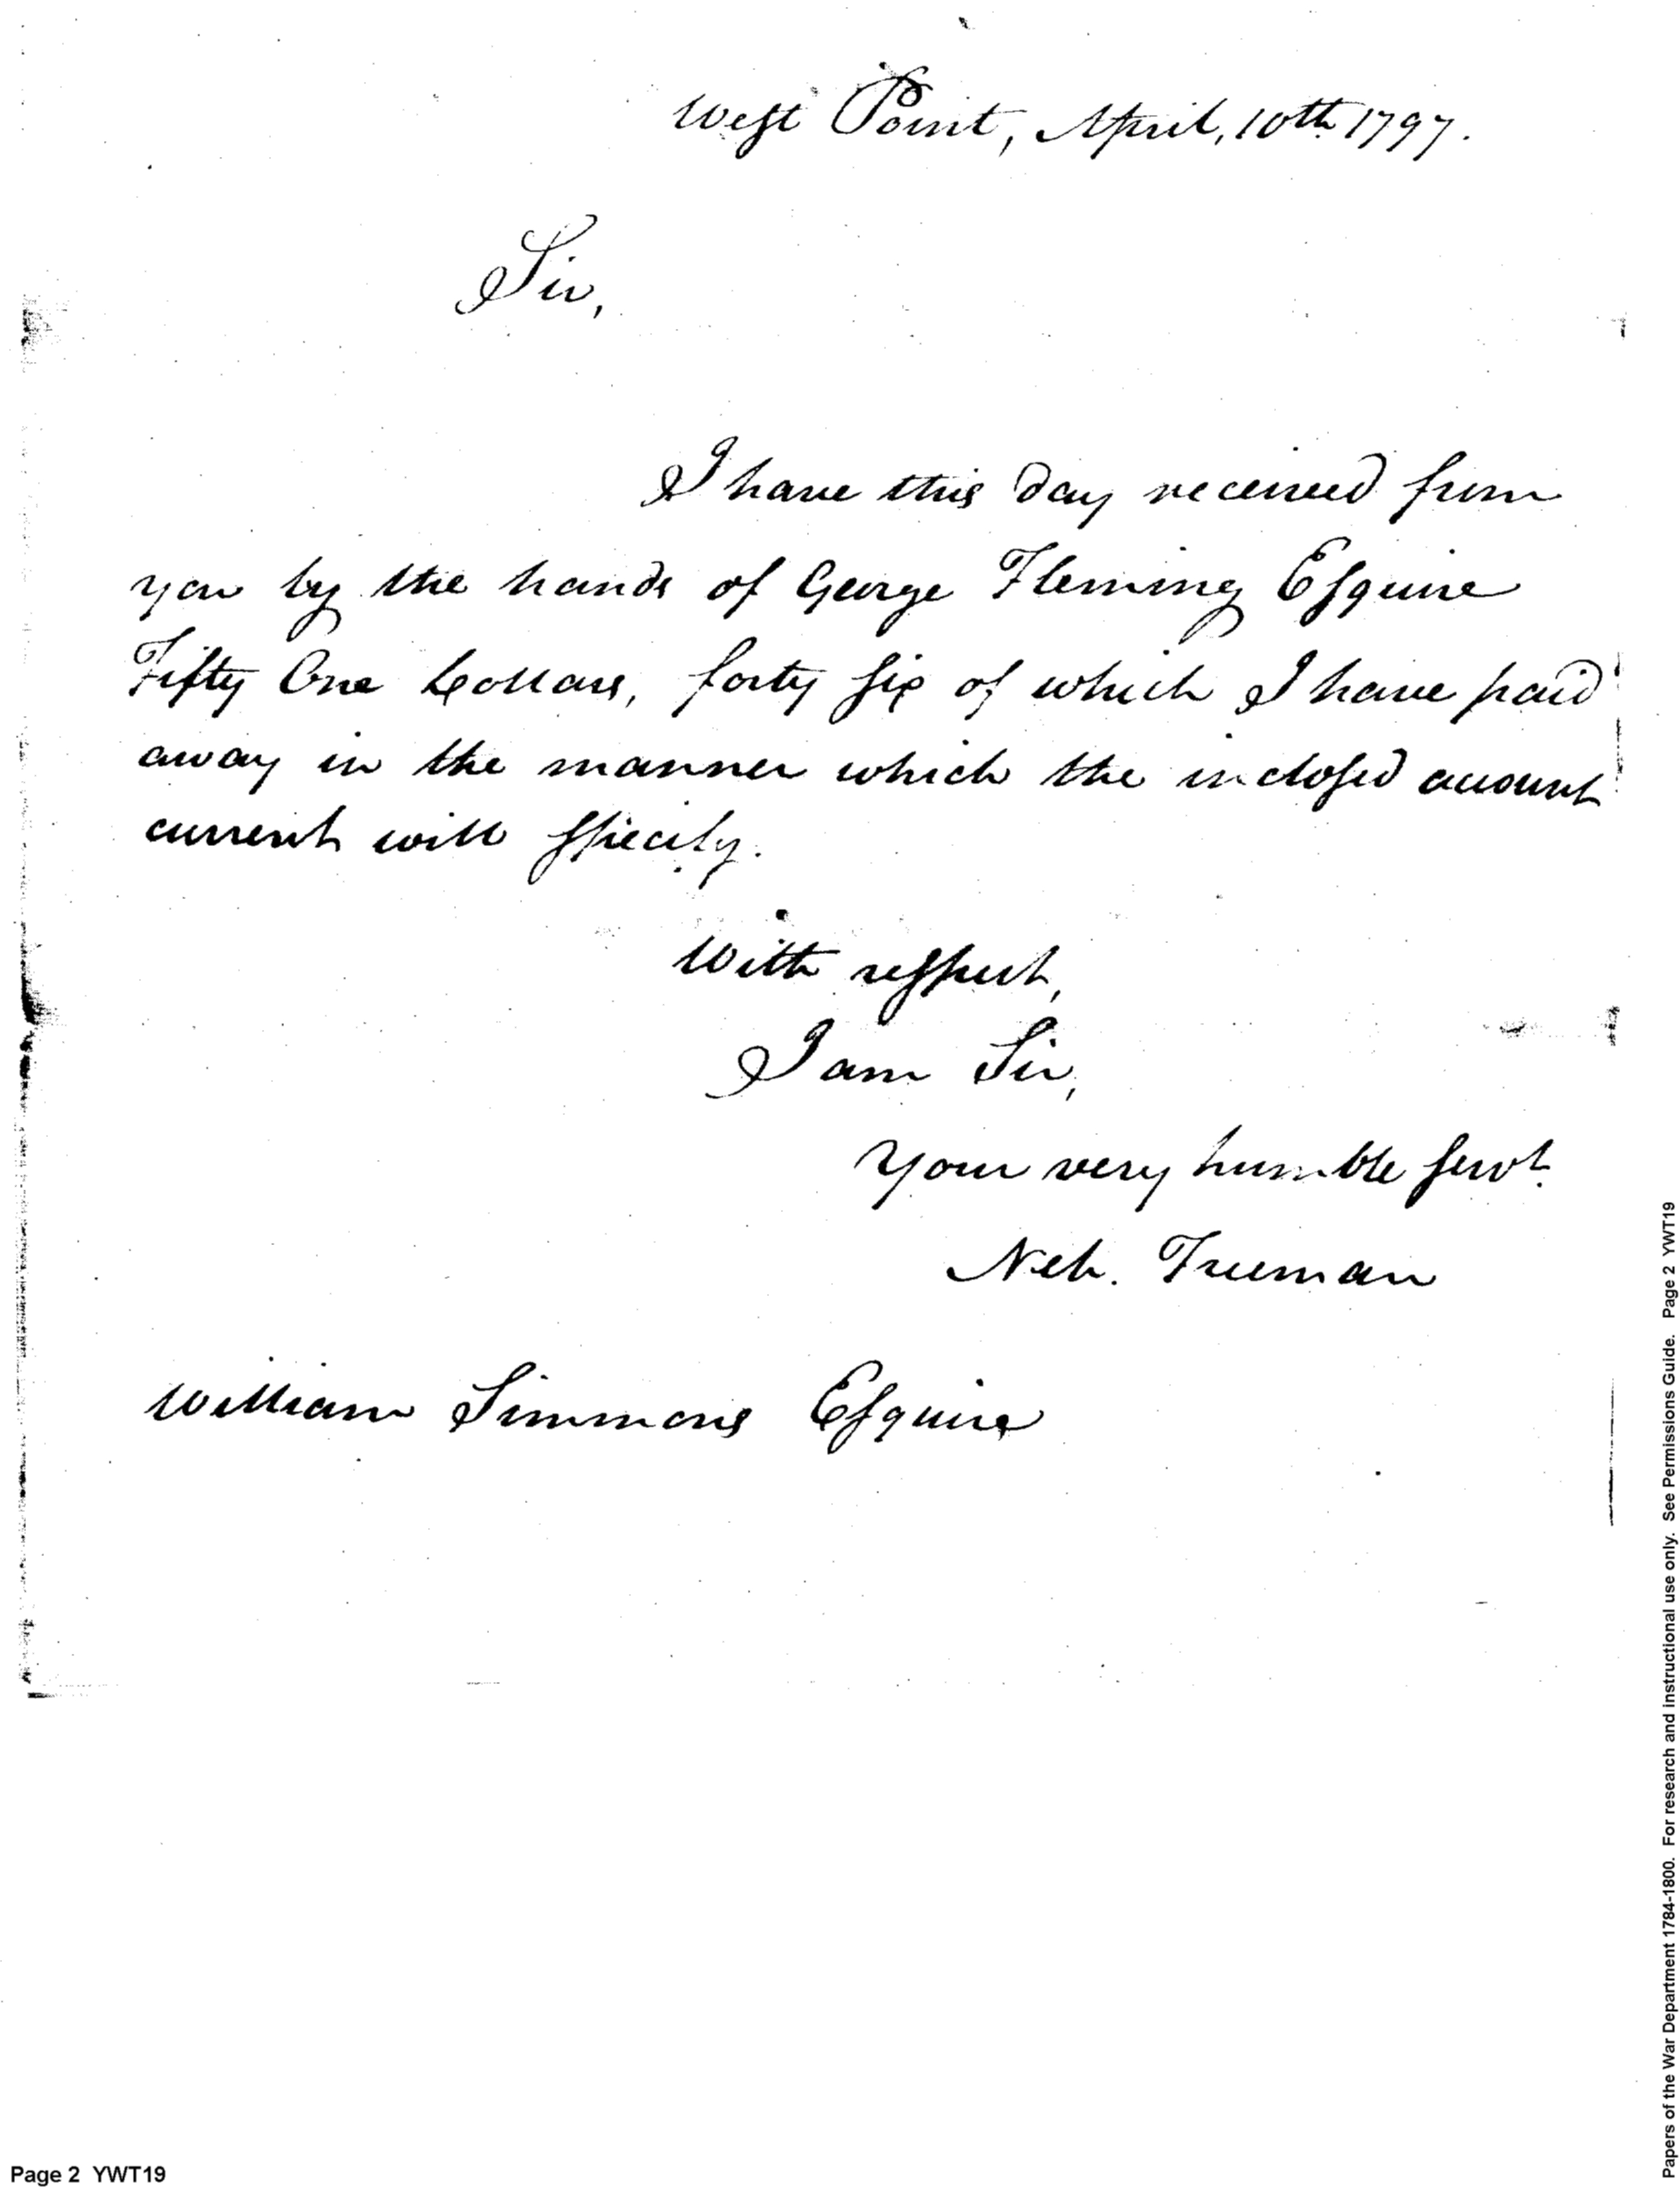 West Point, April, 10th 1797.
Sir,
I have this day received from
you by the hands of George Fleming Esquire
Fifty One Dollars, forty six of which I have paid
away in the manner which the inclosed account
current will specify.
With respect,
I am Sir,
Your very humble servt.
Neh. Freeman
William Simmons Esquire
Page 2 YWT19
Papers of the War Department 1784-1800. For research and instructional use only. See Permissions Guide. Page 2 YWT19